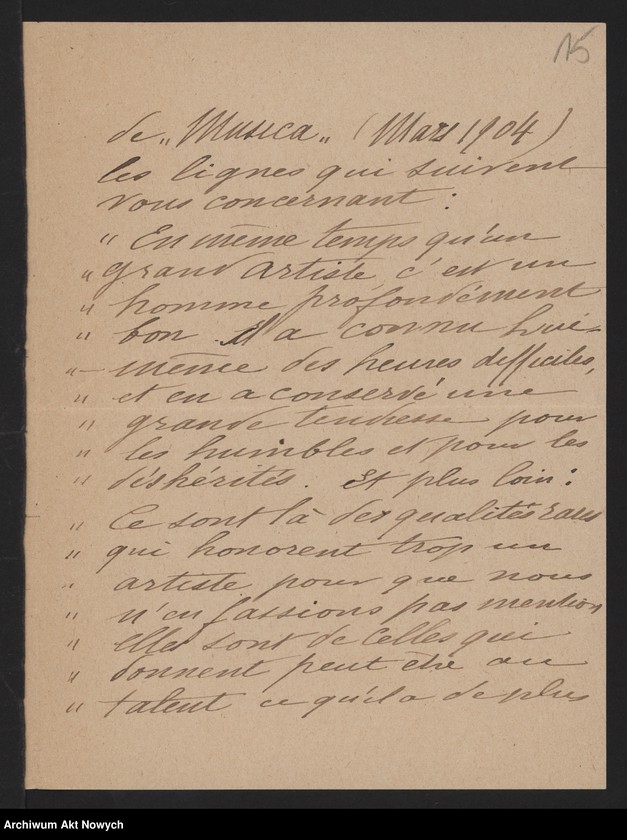 15
de „Musica„ (Mars 1904)
les lignes qui suivent
vous concernant :
" En même temps qu'un
" grand artiste, c'est un
" homme profondément
" bon. Il a connu lui-
" - même des heures difficiles,
" et en a conservé une
" grande tendresse pour
" les humbles et pour les
" déshérités. Et plus loin :
" Ce sont là des qualités rares
" qui honorent trop un
" artiste pour que nous
" n'en fassions pas mention
" elles sont de celles qui
" donnent peut être au
" talent ce qu'il a de plus
Archiwum Akt Nowych